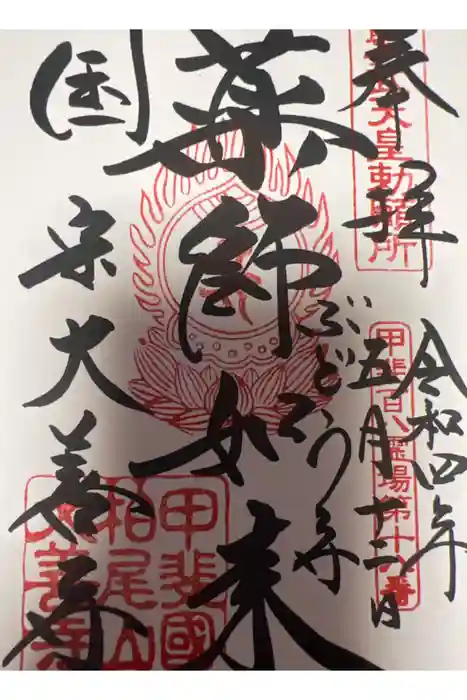 奉拝
令和四年
五月十三日
ぶどう寺
薬師如来
国宝大善寺
天皇勅願所
甲斐百八霊場第十六番
甲斐國
柏尾山
大善寺